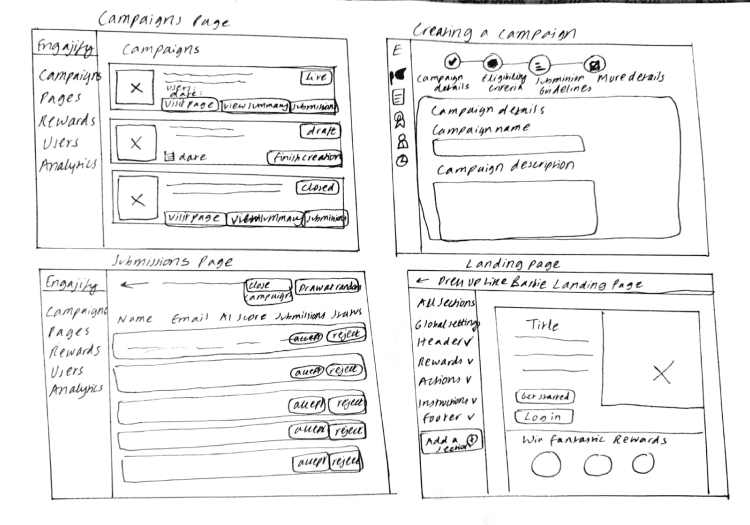 Campaigns Page
Engajify
Campaigns
Pages
Rewards
Users
Analytics
Campaigns
live
users:
date:
visit page
view summary
submissions
draft
date
finish creation
closed
visit page
view summary
submissions
Creating a campaign
E
Campaign details
eligibility criteria
submission guidelines
More details
Campaign details
Campaign name
Campaign description
Submissions Page
Engajify
Campaigns
Pages
Rewards
Users
Analytics
←
close campaign
Draw at random
Name Email AI score submissions status
accept reject
accept reject
accept reject
accept reject
accept reject
Landing page
← Dress Up Like Barbie Landing Page
All sections
Global settings
Header v
Rewards v
Actions v
Instructions v
Footer v
Add a section +
Title
Get started
Log in
Win Fantastic Rewards